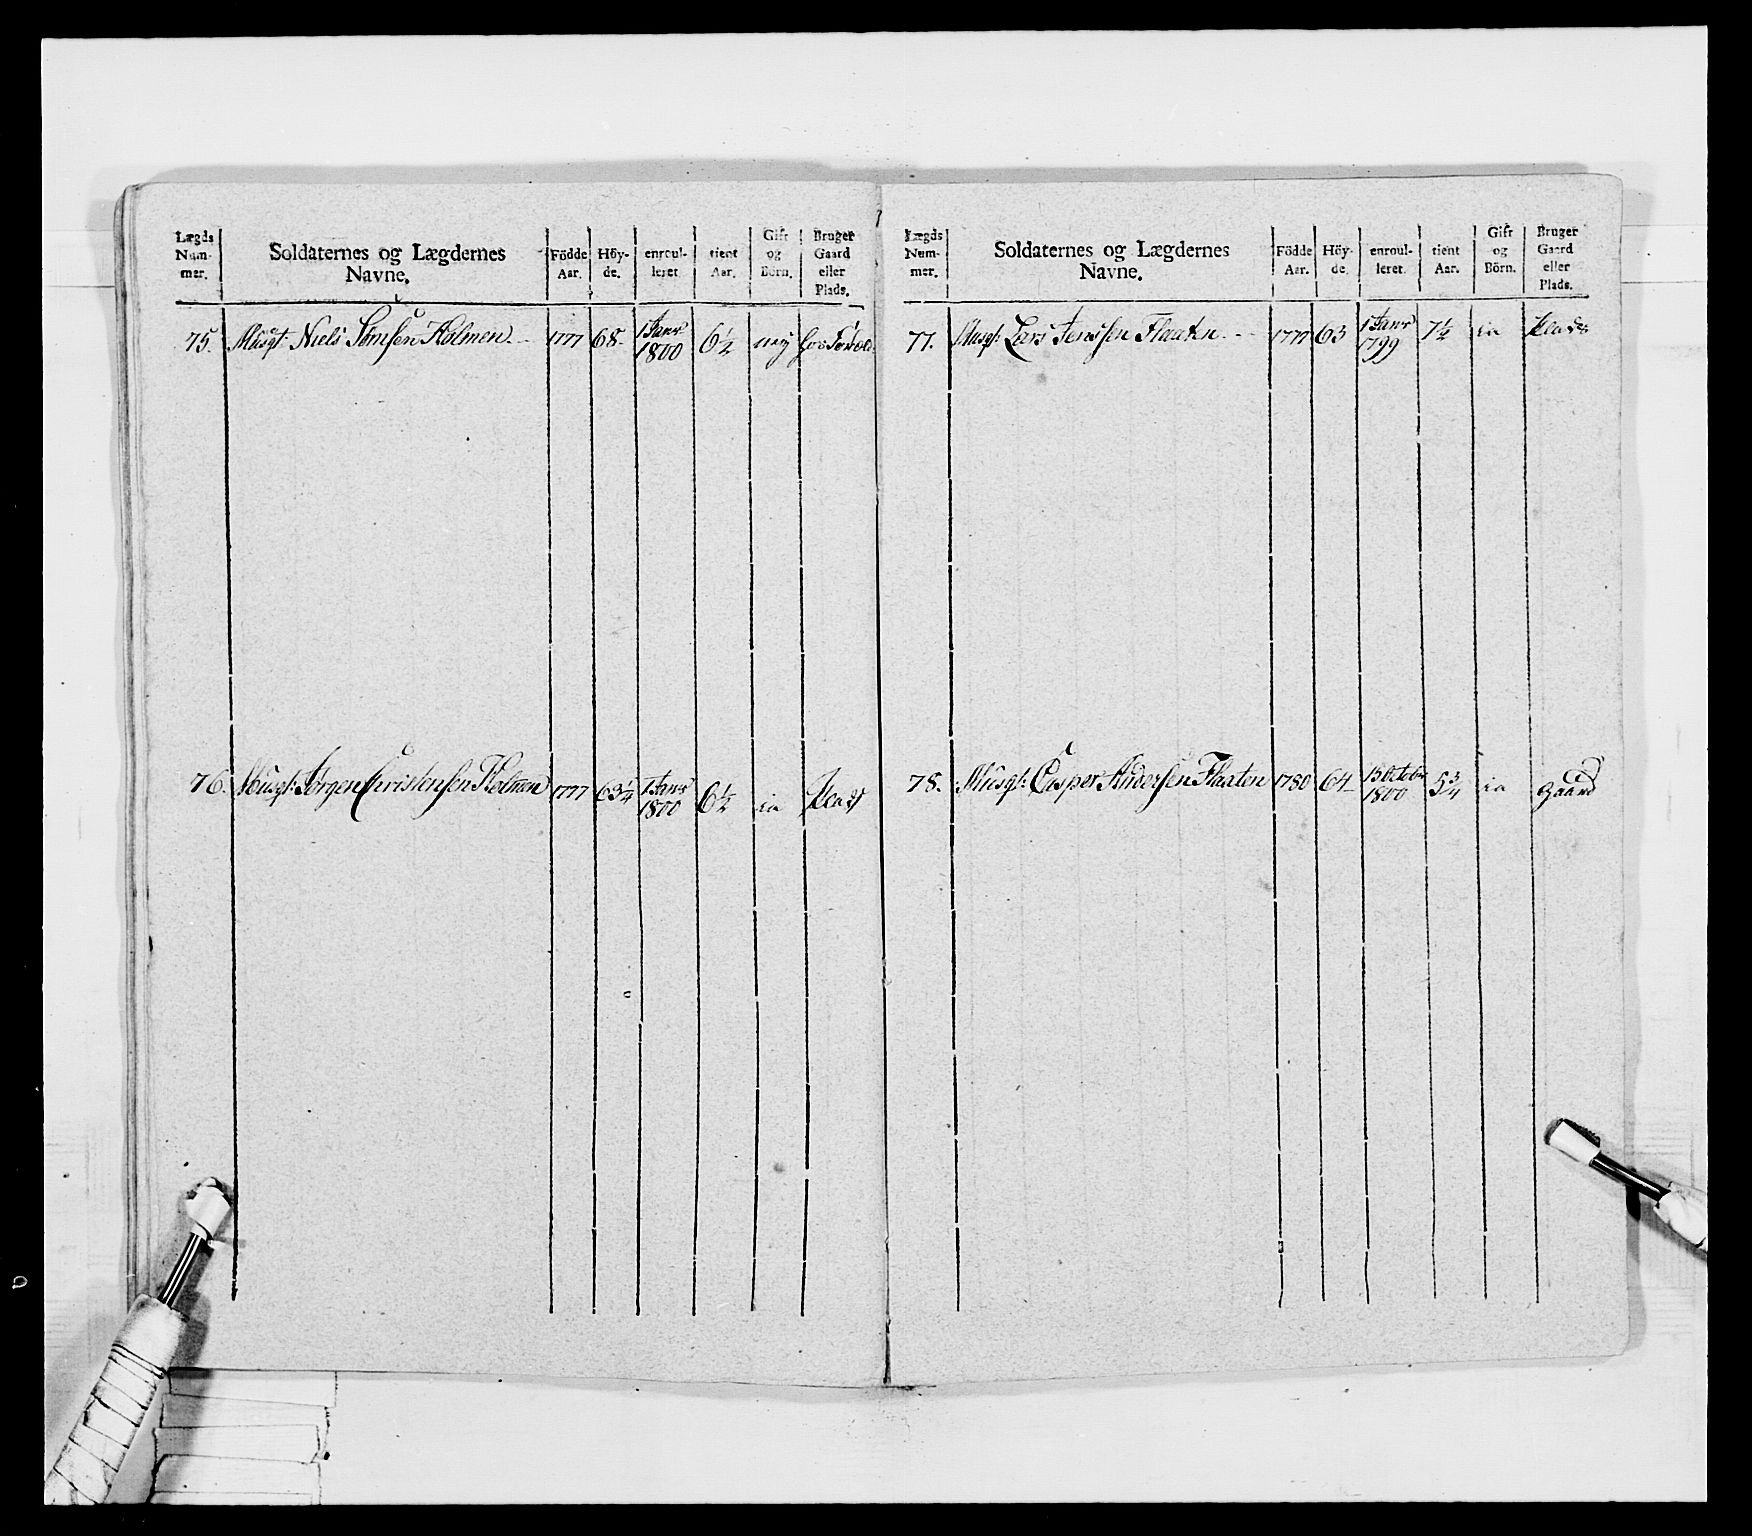 Lægds Num-mer. | Soldaternes og Lægdernes Navne. | Födde Aar. | Höy-de. | enroul-leret | tient Aar. | Gift og Börn. | Bruger Gaard eller Plads.
75. Musqt: Niels Simensen Holmen. 1777 68. 1 Janr 1800 6½ ney hos
76. Musqt: Jørgen Christensen Holmen 1777 63¼ 1 Janr 1800 6½ ia Plads
Lægds Num-mer. | Soldaternes og Lægdernes Navne. | Födde Aar. | Höy-de. | enroul-leret | tient Aar. | Gift og Börn. | Bruger Gaard eller Plads.
77. Musqt: Lars Jenssen Flaaten 1777 63 1 Janr 1799 7½ ia Plads
78. Musqt: Casper Andersen Flaaten 1780 64 15 Octobr 1800 5¾ ia Gaard